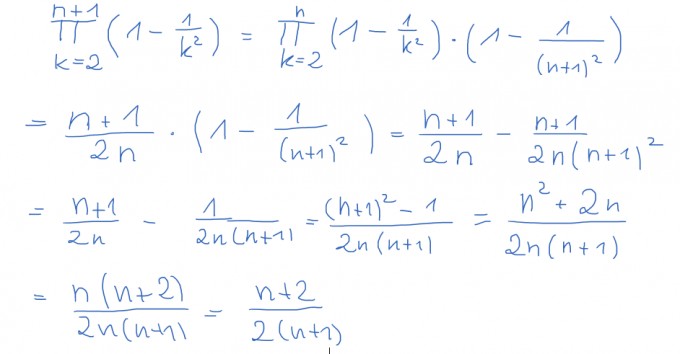 ∏_{k=2}^{n+1} (1 - 1/k²) = ∏_{k=2}^{n} (1 - 1/k²) · (1 - 1/(n+1)²)
= (n+1)/(2n) · (1 - 1/(n+1)²) = (n+1)/(2n) - (n+1)/(2n(n+1)²)
= (n+1)/(2n) - 1/(2n(n+1)) = ((n+1)² - 1)/(2n(n+1)) = (n² + 2n)/(2n(n+1))
= (n(n+2))/(2n(n+1)) = (n+2)/(2(n+1))